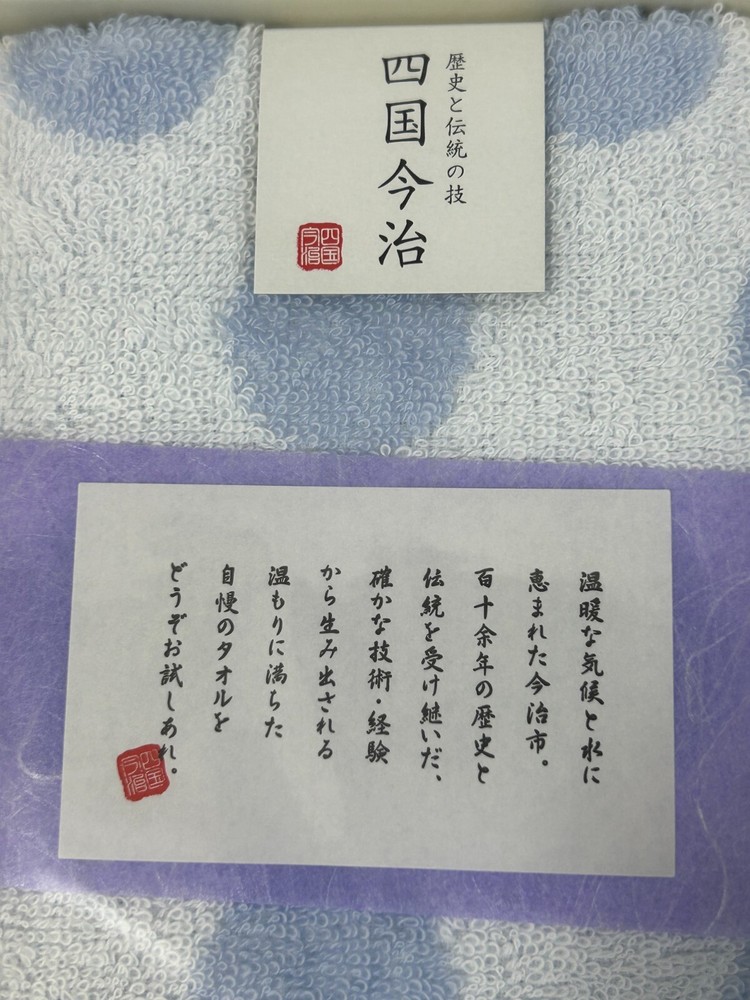 歴史と伝統の技
四国今治
四国
今治
温暖な気候と水に
恵まれた今治市。
百十余年の歴史と
伝統を受け継いだ、
確かな技術・経験
から生み出される
温もりに満ちた
自慢のタオルを
どうぞお試しあれ。
四国
今治